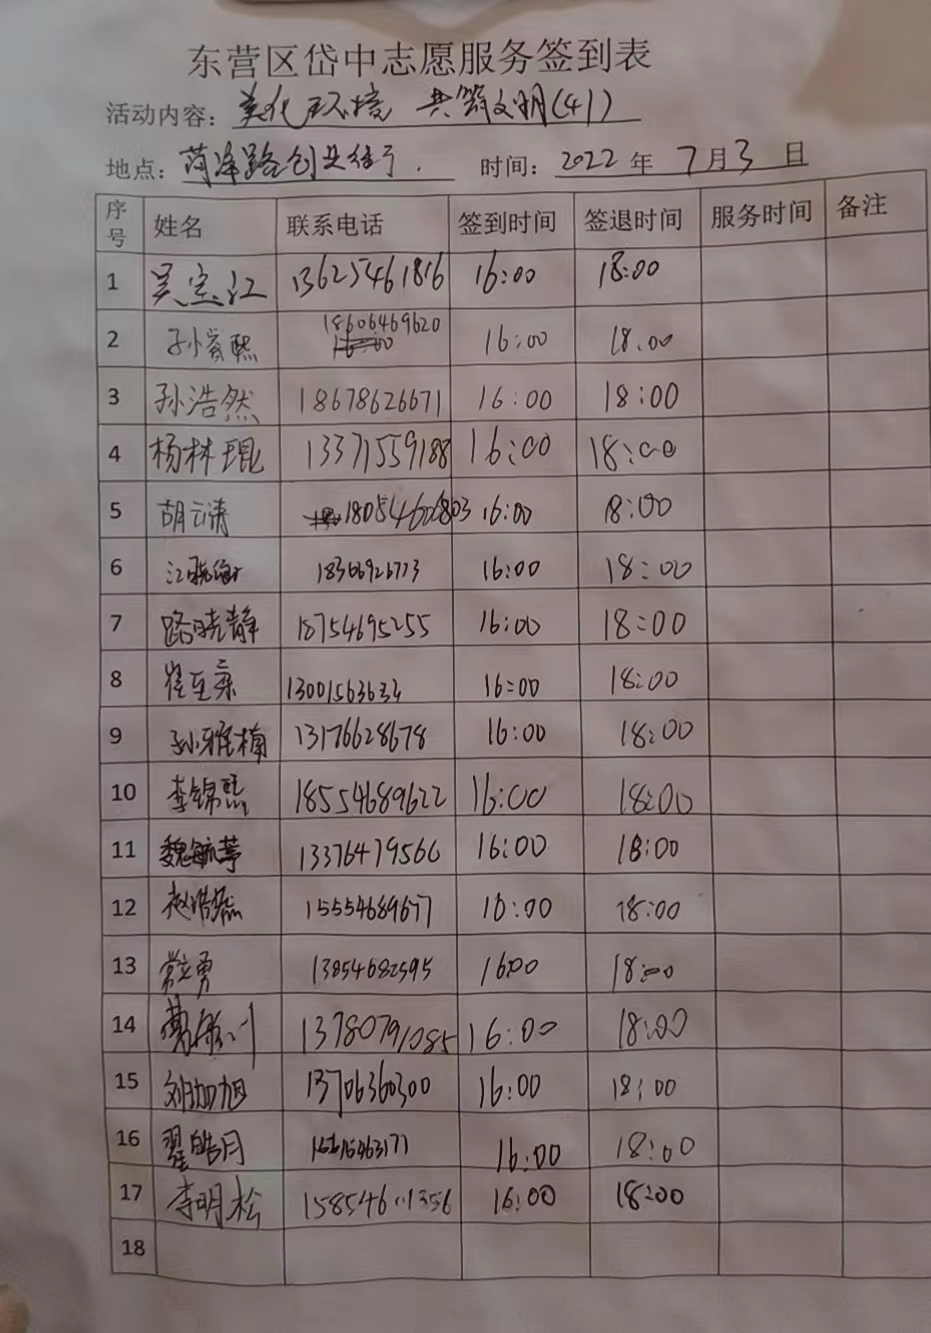 东营区岱中志愿服务签到表
活动内容：美化环境 共筑文明(41)
地点：菏泽路创业街了. 时间：2022 年 7 月 3 日
序号 姓名 联系电话 签到时间 签退时间 服务时间 备注
1 吴宝江 13625461816 16:00 18:00
2 孙睿熙 18606469620 16:00 18:00
3 孙浩然 18678626671 16:00 18:00
4 杨林琨 13371559188 16:00 18:00
5 胡云涛 18054602803 16:00 18:00
6 18366926773 16:00 18:00
7 路晓静 18754695255 16:00 18:00
8 13001563634 16:00 18:00
9 孙雅楠 13176628678 16:00 18:00
10 李锦熙 18554689622 16:00 18:00
11 13376479566 16:00 18:00
12 15554689677 16:00 18:00
13 13854682595 16:00 18:00
14 13780791085 16:00 18:00
15 刘加旭 13706360300 16:00 18:00
16 翟皓月 16:00 18:00
17 李明松 16:00 18:00
18